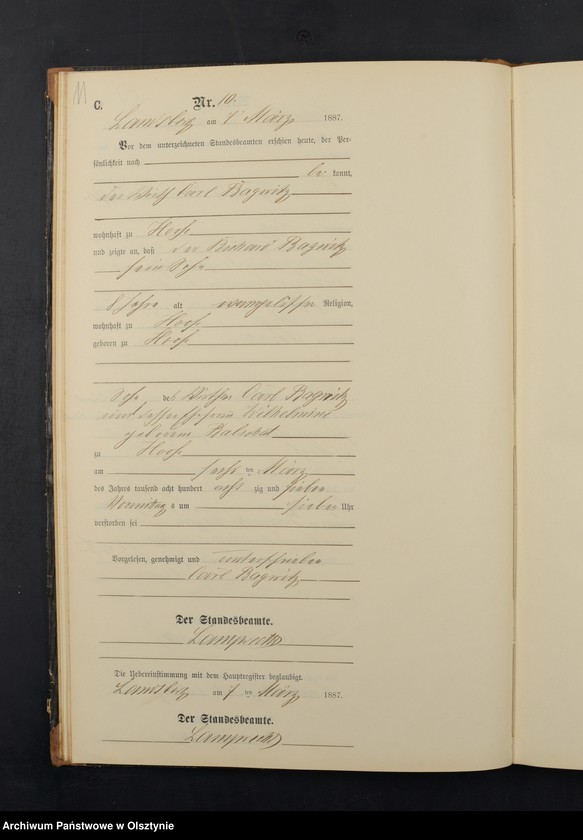 11
C.
Nr. 10.
am 7 März 1887.
Vor dem unterzeichneten Standesbeamten erschien heute, der Per-
sönlichkeit nach
be kannt,
der Wirth Carl Bagnitz
wohnhaft zu
und zeigte an, daß der Richard Bagnitz
sein Sohn
8 Jahre alt evangelischer Religion,
wohnhaft zu
geboren zu
Sohn des Wirths Carl Bagnitz
und dessen Ehefrau Wilhelmine
geborene
zu
am sechs ten März
des Jahres tausend acht hundert acht zig und sieben
Vormittag s um sieben Uhr
verstorben sei
Vorgelesen, genehmigt und unterschrieben
Carl Bagnitz
Der Standesbeamte.
Lamprecht
Die Uebereinstimmung mit dem Hauptregister beglaubigt.
am 7 ten März 1887.
Der Standesbeamte.
Lamprecht
Archiwum Państwowe w Olsztynie